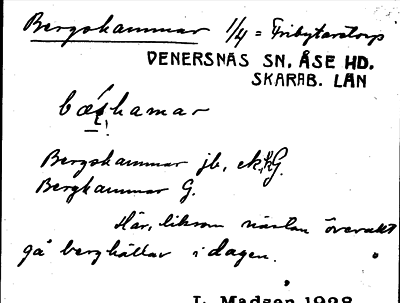 Bergshammar 1/4 = Fribytaretorp
VENERSNÄS SN. ÅSE HD.
SKARAB. LÄN
bæshamar
Bergshammar jb, ek, kG.
Berghammar G.
Här, liksom nästan överallt
gå berghällar i dagen.
I. Madsen 1928